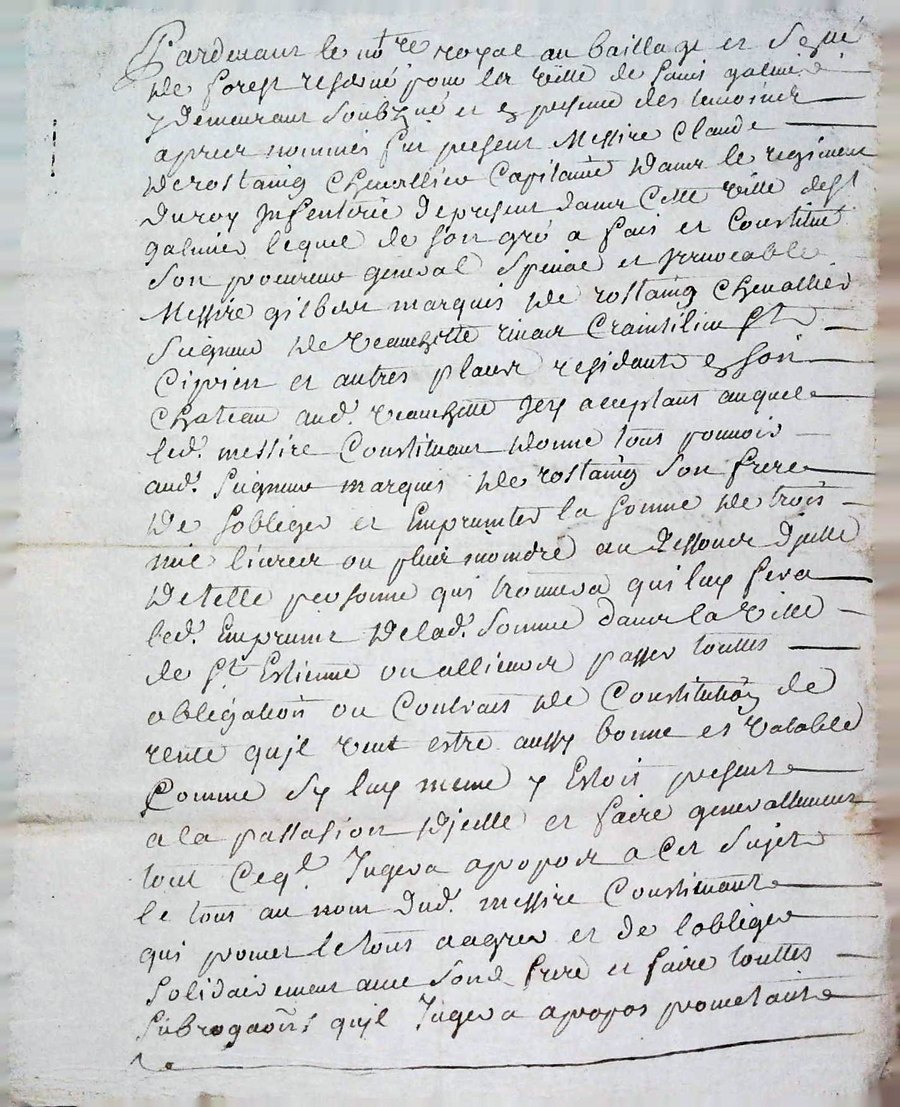 Pardevant le notre royal au bailliage et Senné
de forest reservé pour la ville de saint galmier
y demeurant soubzné et en presence des temoins
apres nommés fut present Messire Claude
de rostaing chevallier Capitaine dans le regiment
du roy Jnfenterie de present dans cette ville de st
galmier lequel de son gré a fait et Constitué
son procureur general special et jrrevocable
Messire gilbert marquis de rostaing chevallier
seigneur de veauchette rivas Craintilieu st
Ciprien et autres places residant en son
chateau aud. veauchette Jcy acceptant auquel
led. messire Constituant donne tout pouvoir
aud. seigneur marquis de rostaing son frere
de sobliger et Emprunter la somme de trois
mil livres ou plus moindre au dessous d'jcelle
de telle personne qui trouvera qui luy fera
led. Emprunt de lad. somme dans la ville
de st Estienne ou allieurs passer touttes
obligation ou Contrats de Constitution de
rente qujl veut estre aussy bonne et valable
Comme sy luy meme y Estoit present
a la passasion djcelle et faire generallement
tout ceql Jugera apropos a cet sujet
le tout au nom dud. messire Constituant
qui promet le tout agreer et de lobliger
solidairement avec sond frere et faire touttes
subrogaons qujl Jugera apropos prometant